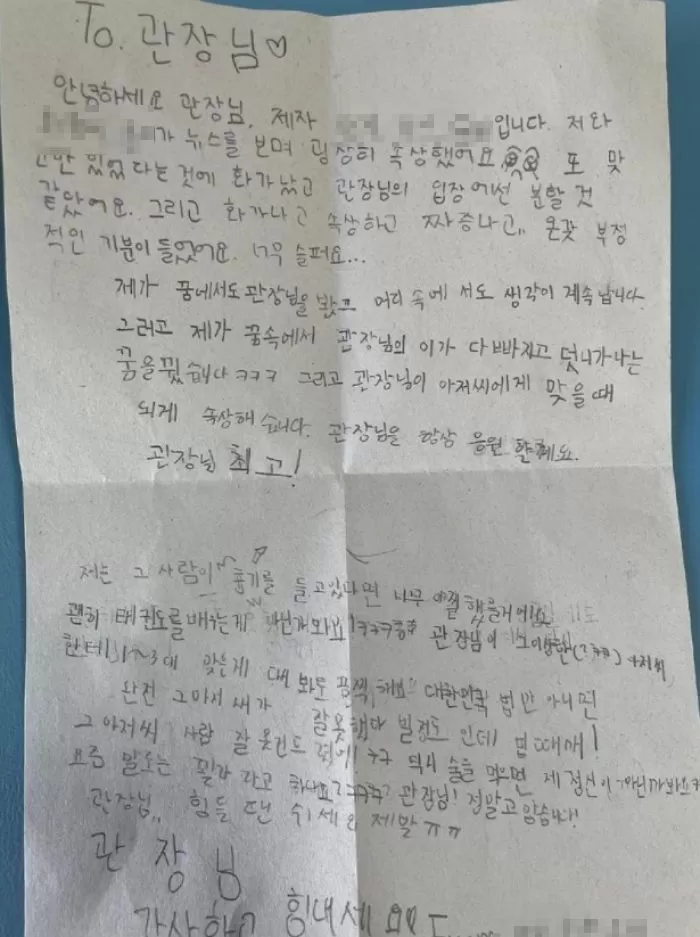 To. 관장님♡
안녕하세요 관장님. 제자 입니다. 저와
가 뉴스를 보며 굉장히 속상했어요 또 맞
고만 있었다는 것에 화가 났고 관장님의 입장에선 분할 것
같았어요. 그리고 화가나고 속상하고 짜증나고,, 온갖 부정
적인 기분이 들었어요. 너무 슬퍼요...
제가 꿈에서도 관장님을 봤고 머리 속에서도 생각이 계속 납니다.
그러고 제가 꿈속에서 관장님의 이가 다 빠지고 덧니가 나는
꿈을 꿨습니다 ㅋㅋㅋ 그리고 관장님이 아저씨에게 맞을 때
되게 속상해습니다. 관장님을 항상 응원 할께요.
관장님 최고!
저는 그 사람이 흉기를 들고 있다면 너무 했을거에요
괜히 태권도를 배우는게 아닌가봐요! 관장님이
한테 1~3대 맞는게 대한민국 법만 아니면
완전 그 잘못했다 빌정도 인데 법 때매!
그 아저씨 사람 잘못 건드 ㅋㅋ 역시 술을 먹으면 제정신이 아닌가봐요
요즘 말로는 라고 하나요? 관장님! 정말 고맙습니다!
관장님,, 힘들 땐 쉬세요 제발 ㅠㅠ
관장님
감사하고 힘내세요